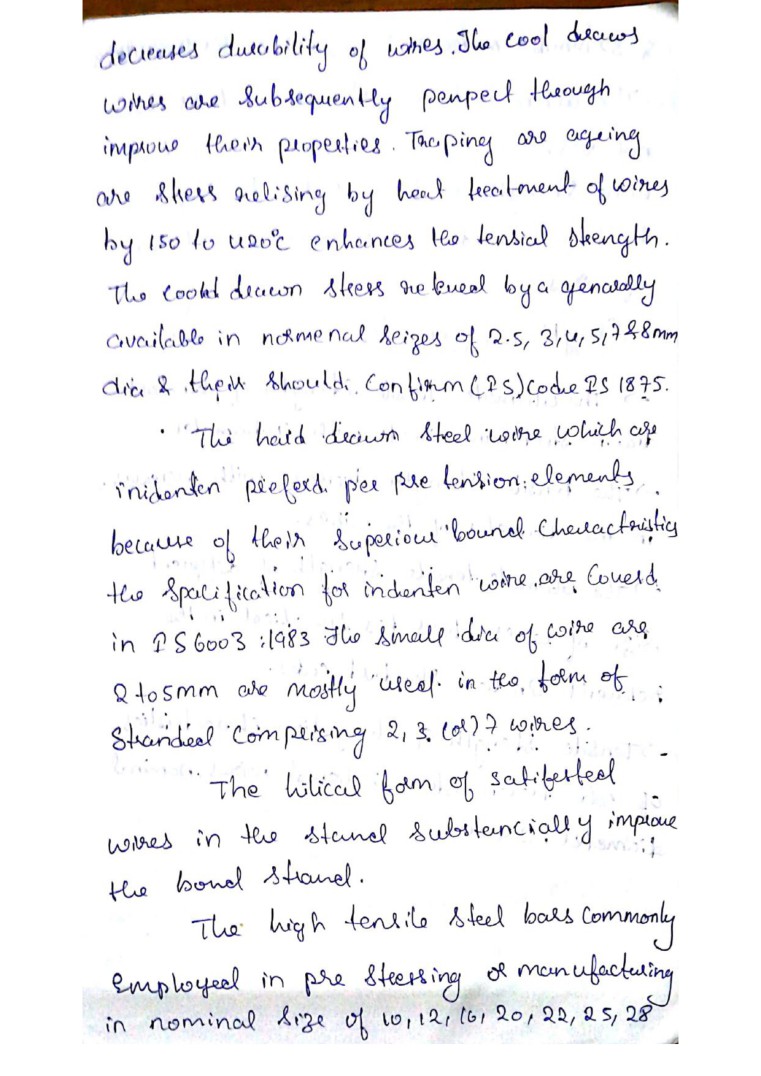 decreases durability of wires. The cool draws
wires are subsequently penpect through
improve their properties. Tarping are ageing
are stress relising by heat treatment of wires
by 150 to 420°c enhances the tensial strength.
The coold drawn stress by a genarally
available in normenal seizes of 2.5, 3, 4, 5, 7 & 8mm
dia & their should. Confirm (IS) code IS 1875.
The hard drawn steel wire which are
inidenten preferd. per pre tension elements
because of their superiour bound Charactristics
the spacification for indenten wire are Coverd
in IS 6003 : 1983 The small dia of wire are
2 to 5mm are mostly used. in the form of
Strandied Comprising 2, 3. (or) 7 wires.
The hilical form of
wires in the stand substancially improve
the bond strand.
The high tensile steel bars commonly
Employed in pre steersing or manufacturing
in nominal size of 10, 12, 16, 20, 22, 25, 28